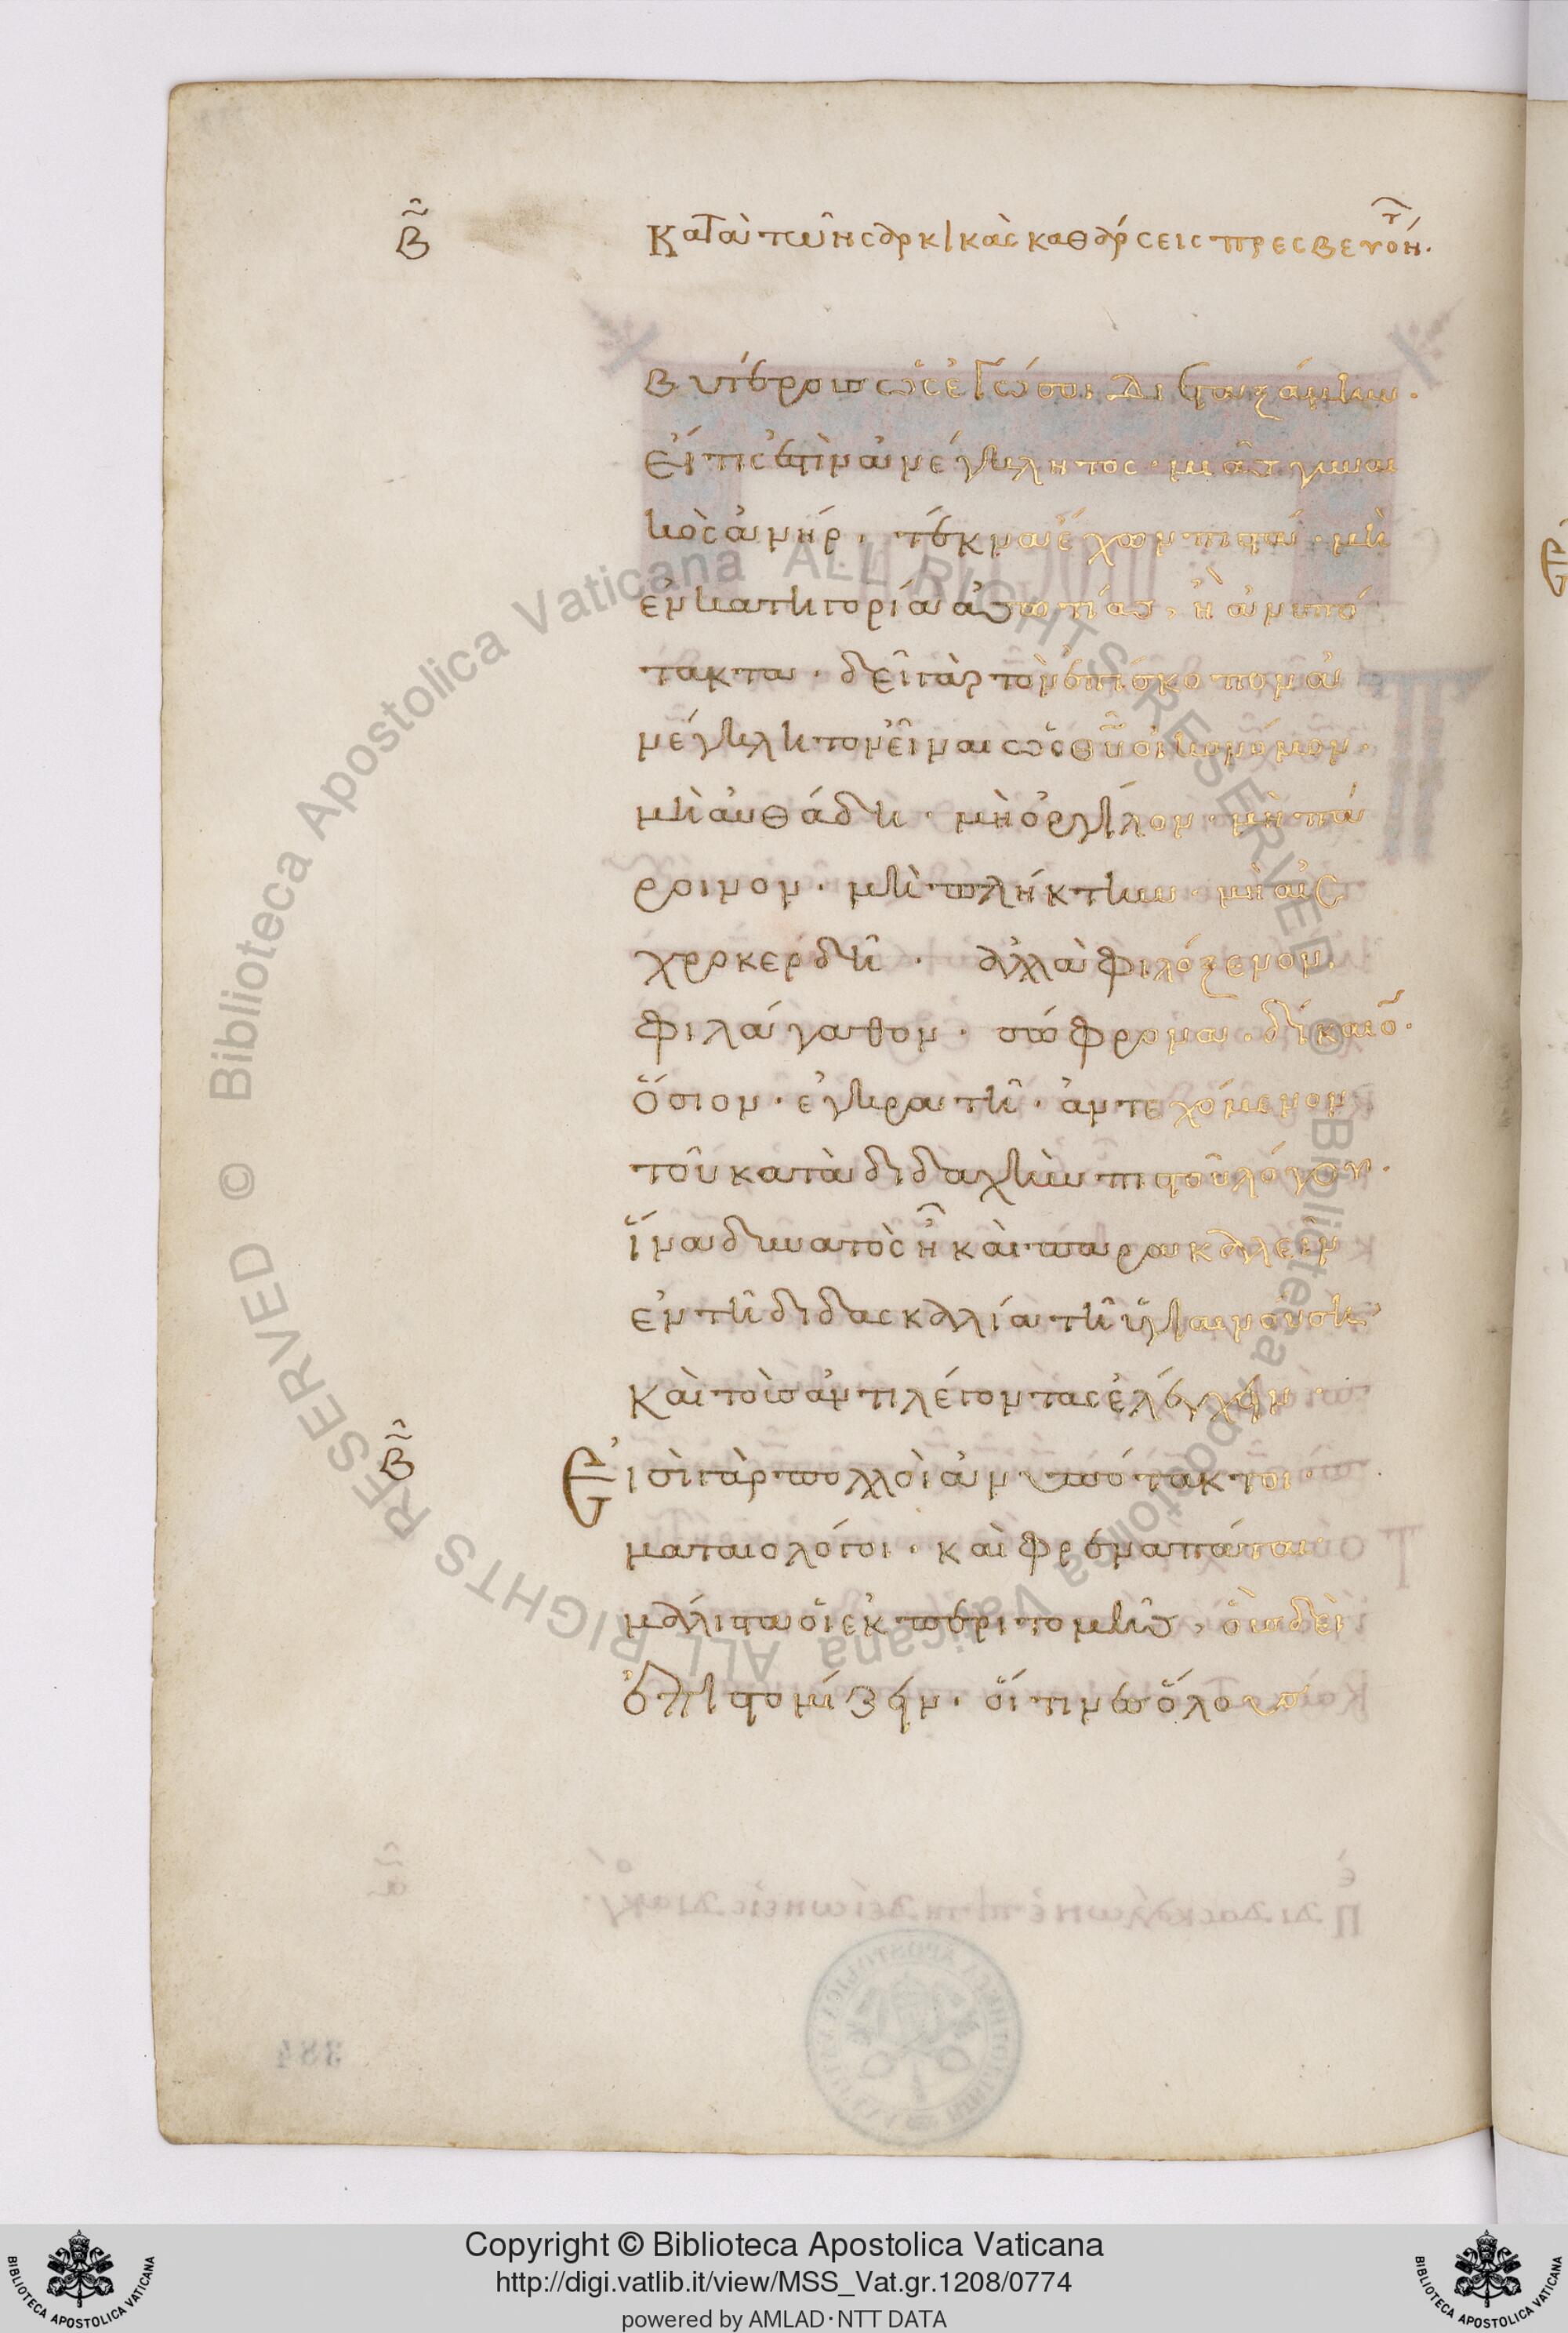 β̃ Κατὰ τῶν σαρκικὰς καθάρσεις πρεσβευόν
τ
βυτέρουσ ὡς ἐγώ σοι διεταξάμην·
εἴ τις ἐστὶν ἀνέγκλητος· μιᾶσ γυναι
κὸς ἀνήρ· τέκνα ἔχων πιστά· μὴ
ἐν κατηγορία ἀσωτίασ, ἢ ἀνυπό
τακτα· δεῖ γὰρ τὸν ἐπίσκοπον ἀ
νέγκλητον εἶναι ὡς θῦ οἰκονόμον·
μὴ αὐθάδη· μὴ ὀργίλον· μὴ πά
ροινον· μὴ πλήκτην· μὴ αἰσ
χροκερδῆ· ἀλλὰ φιλόξενον·
φιλάγαθον· σώφρονα· δίκαιο·
ὅσιον· ἐγκρατῆ· ἀντεχόμενον
τοῦ κατὰ διδαχὴν πιστοῦ λόγου·
ἵνα δυνατὸς ἦ καὶ παρακαλεῖν
ἐν τῆ διδασκαλία τῆ ὑγιαινούση
καὶ τοὺσ ἀντιλέγοντας ἐλέγχειν·
β̃ Εἰσὶ γὰρ πολλοὶ ἀνυπότακτοι·
ματαιολόγοι· καὶ φρεναπάται
μάλιστα οἱ ἐκ περιτομῆσ, οὓσ δεῖ
ἐπιστομίζειν· οἵτινεσ ὅλουσ
384
Copyright © Biblioteca Apostolica Vaticana
http://digi.vatlib.it/view/MSS_Vat.gr.1208/0774
powered by AMLAD·NTT DATA
Biblioteca Apostolica Vaticana ALL RIGHTS RESERVED © Biblioteca Apostolica Vaticana ALL RIGHTS RESERVED ©
BIBLIOTECA APOSTOLICA VATICANA
BIBLIOTECA APOSTOLICA VATICANA